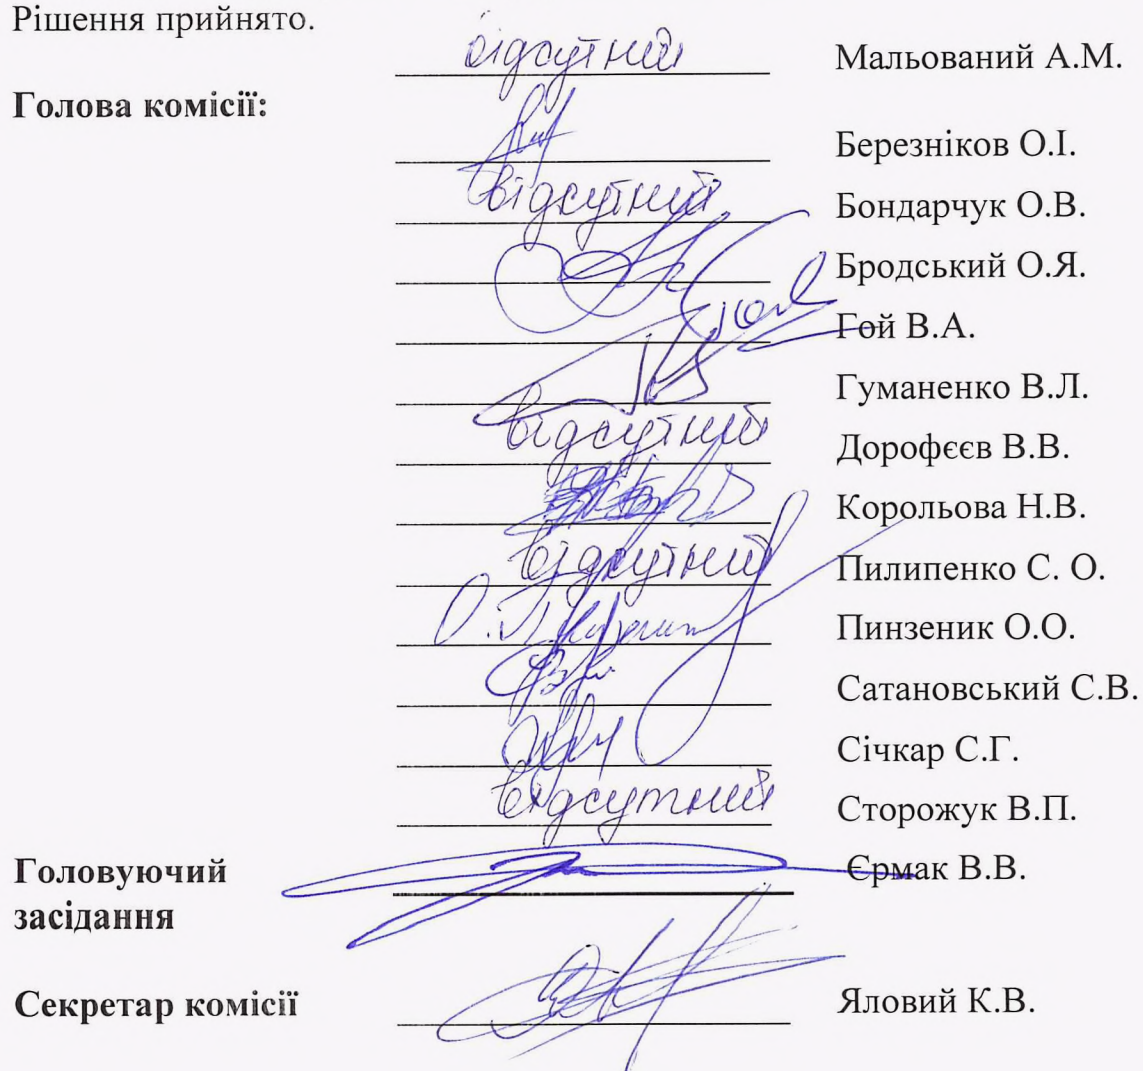 Рішення прийнято.
відсутній Мальований А.М.
Голова комісії:
Березніков О.І.
відсутній Бондарчук О.В.
Бродський О.Я.
Гой В.А.
Гуманенко В.Л.
відсутній Дорофєєв В.В.
Корольова Н.В.
відсутній Пилипенко С. О.
Пинзеник О.О.
Сатановський С.В.
Січкар С.Г.
відсутній Сторожук В.П.
Головуючий Єрмак В.В.
засідання
Секретар комісії Яловий К.В.